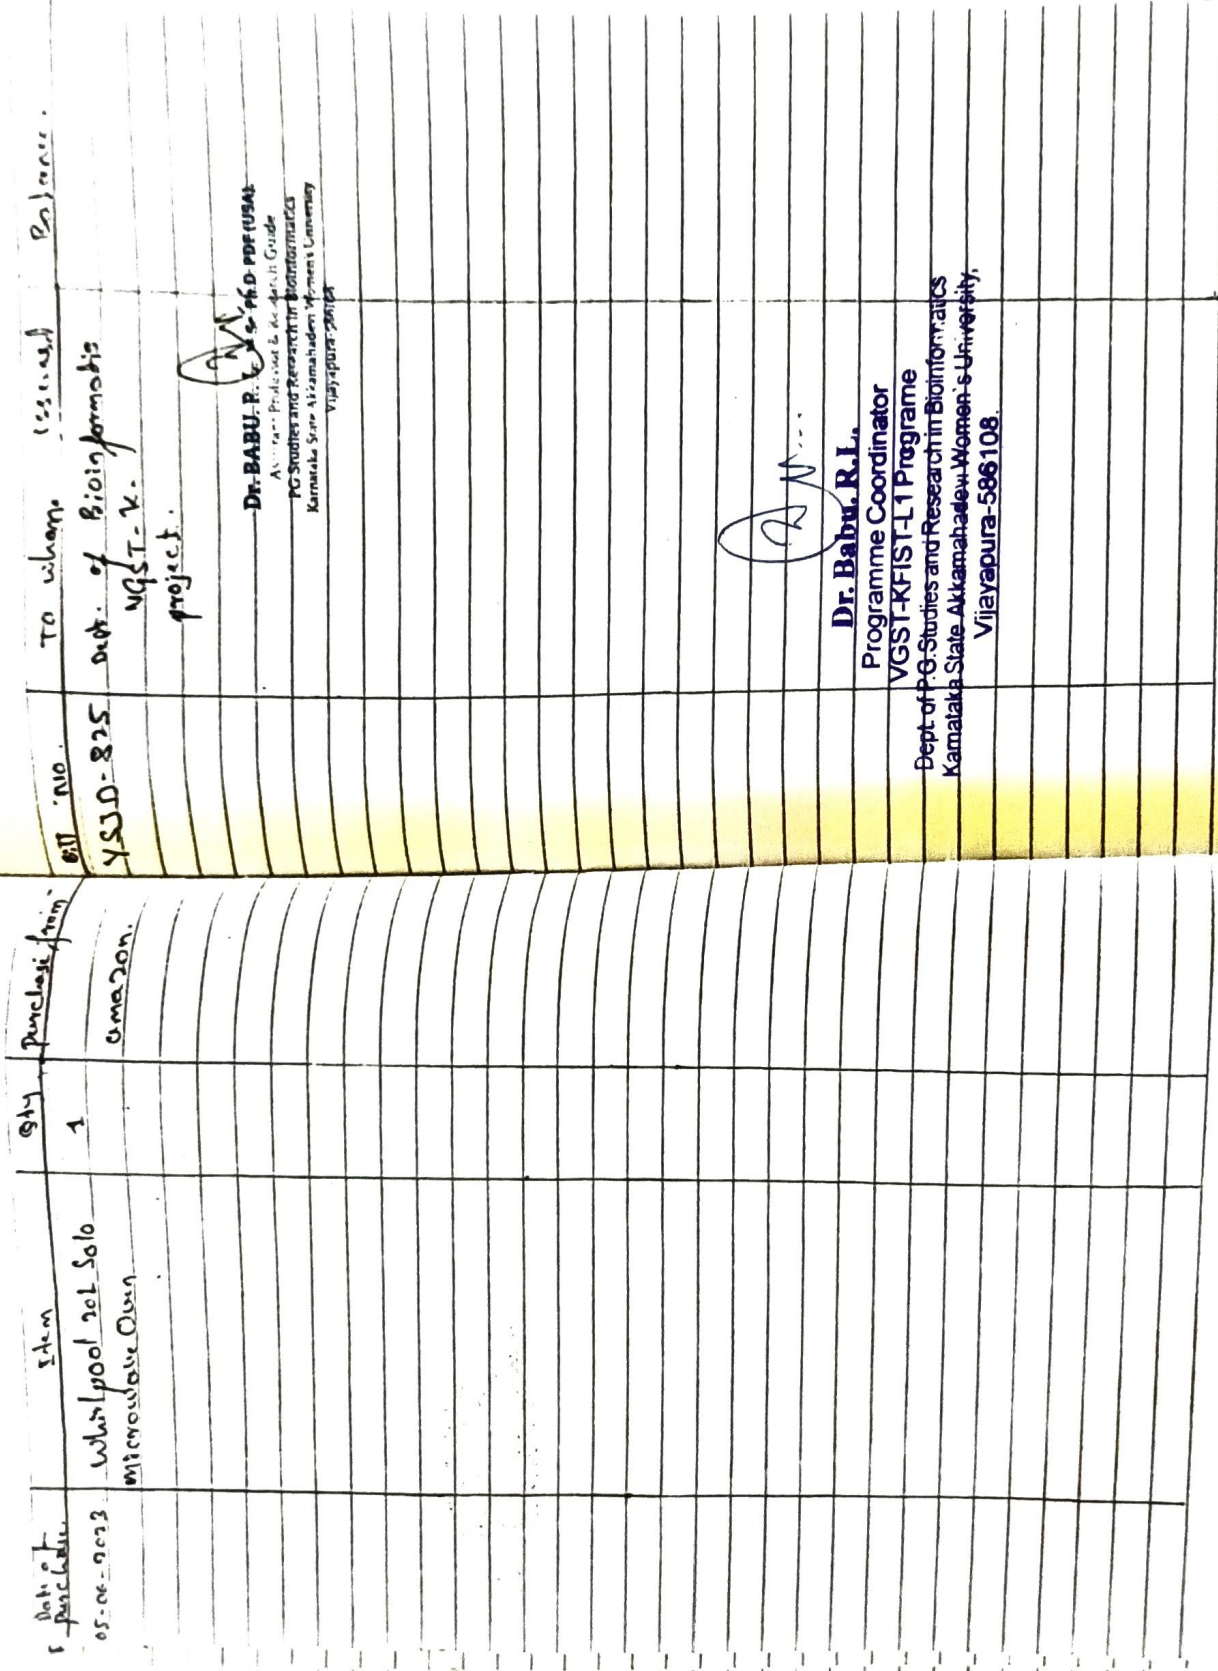 Date of purchase.
Item
Qty
Purchase from
Bill No.
To whom issued
Balance.
05-06-2023
Whirlpool 20L Solo
microwave Oven
1
amazon.
YSJD-825
Dept. of Bioinformatis
VGST-K-
project.
Dr. BABU. R.
PG Studies and Research in Bioinformatics
Karnataka State Akkamahadevi Women's University
Dr. Babu. R.L.
Programme Coordinator
VGST-KFIST-L1 Programe
Dept. of P.G.Studies and Research in Bioinformatics
Karnataka State Akkamahadevi Women's University,
Vijayapura-586108.